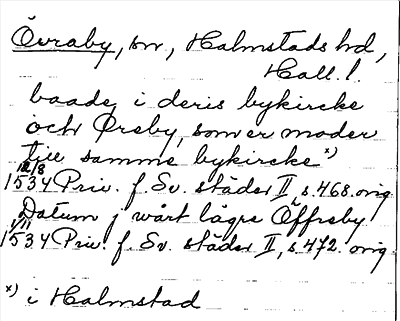 Övraby, sn, Halmstads hd,
Hall. l.
baade i deris bykircke
och Øreby, som er moder
till samme bykircke x)
12/8
1534 Priv. f. Sv. städer II, s. 468. orig.
Datum j wårt lägre Öffreby
1/11
1534 Priv. f. Sv. städer II, s. 472. orig.
x) i Halmstad